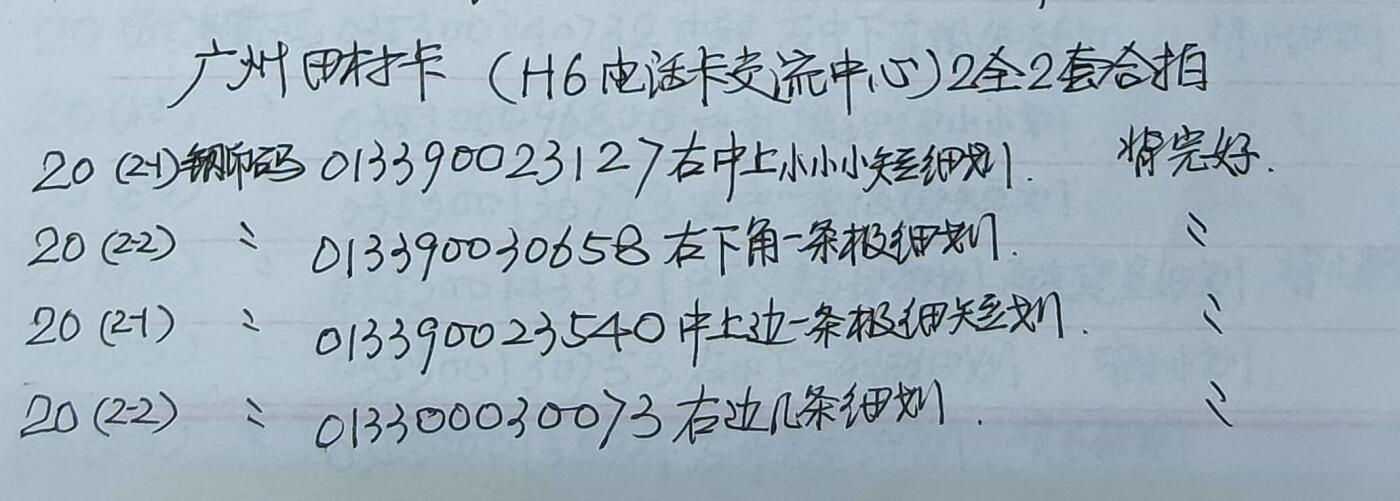 广州田村卡（H6电话卡交流中心）2全2套合拍
20（2-1）钢印码 013390023127右中上小小小短细划. 背完好.
20（2-2） 〃 013390030658右下角一条极细划. 〃
20（2-1） 〃 013390023540中上边一条极细短划. 〃
20（2-2） 〃 013300030073右边几条细划. 〃